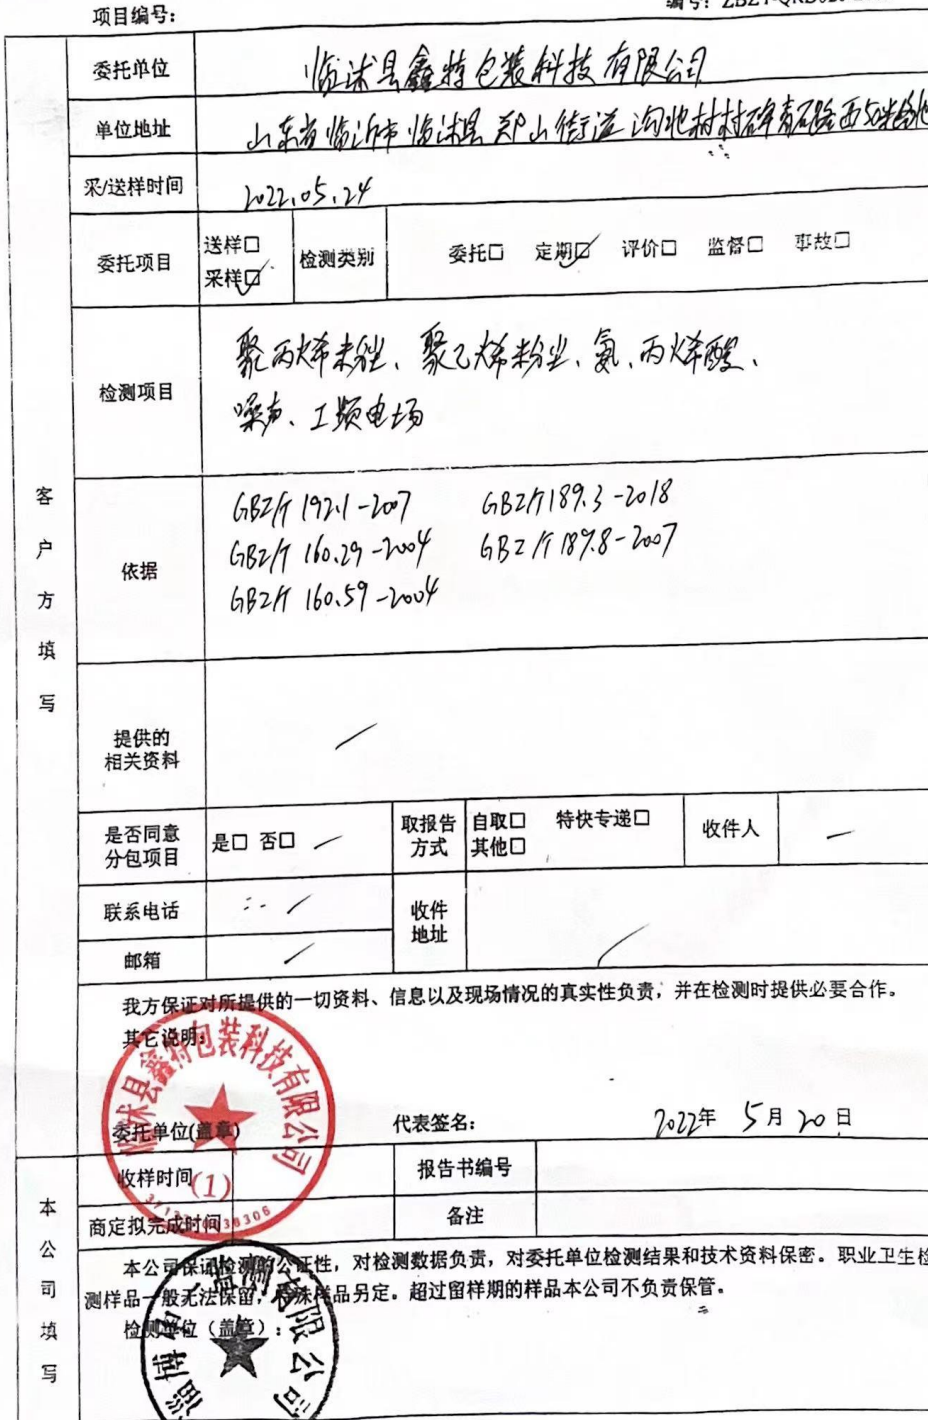 项目编号:
编号: ZBZY-QR
委托单位 临沭县鑫特包装科技有限公司
单位地址 山东省临沂市临沭县郑山街道沟北村村碑青石路西50米路北
采/送样时间 2022.05.24
委托项目 送样□ 采样☑ 检测类别 委托□ 定期☑ 评价□ 监督□ 事故□
检测项目 聚丙烯粉尘、聚乙烯粉尘、氨、丙烯酸、
噪声、工频电场
客户方填写
依据 GBZ/T 192.1-2007 GBZ/T 189.3-2018
GBZ/T 160.29-2004 GBZ/T 189.8-2007
GBZ/T 160.59-2004
提供的
相关资料 /
是否同意
分包项目 是□ 否□ /
取报告
方式 自取□ 特快专递□
其他□
收件人 —
联系电话 /
收件
地址 /
邮箱 /
我方保证对所提供的一切资料、信息以及现场情况的真实性负责，并在检测时提供必要合作。
其它说明:
临沭县鑫特包装科技有限公司
(1)
委托单位(盖章) 代表签名: 2022年 5月20日
本公司填写
收样时间 报告书编号
商定拟完成时间 备注
本公司保证检测的公证性，对检测数据负责，对委托单位检测结果和技术资料保密。职业卫生检
测样品一般无法保留，特殊样品另定。超过留样期的样品本公司不负责保管。
检测单位（盖章）:
监测有限公司